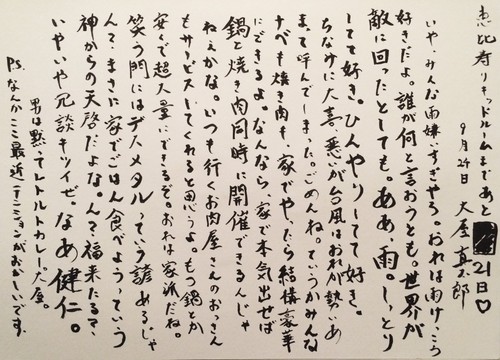 恵比寿リキッドルームまであと21日♡
9月24日 大屋真太郎
いや、みんな雨嫌いすぎやろ。おれは雨けっこう
好きだよ。誰が何と言おうとも。世界が
敵に回ったとしても。ああ、雨。しっとり
してて好き。ひんやりしてて好き。
ちなみに大喜、悪いが台風はおれが勢いあ
まって呼んでしまった。ごめんね。ていうかみんな
ナベも焼き肉も、家でやったら結構豪華
にできるよ。なんなら、家で本気出せば
鍋と焼き肉同時に開催できるんじゃ
ねぇかな。いつも行くお肉屋さんのおっさん
もサービスしてくれると思うよ。もつ鍋とか
安くで超大量にできるぞ。おれは家派だね。
笑う門にはデスメタルっていう諺あるじゃ
ん?まさに家でごはん食べようっていう
神からの天啓だよな。ん?福来たる?
いやいや冗談キツイぜ。なぁ健仁。
男は黙ってレトルトカレー。大屋。
P.S. なんかここ最近テンションがおかしいです。